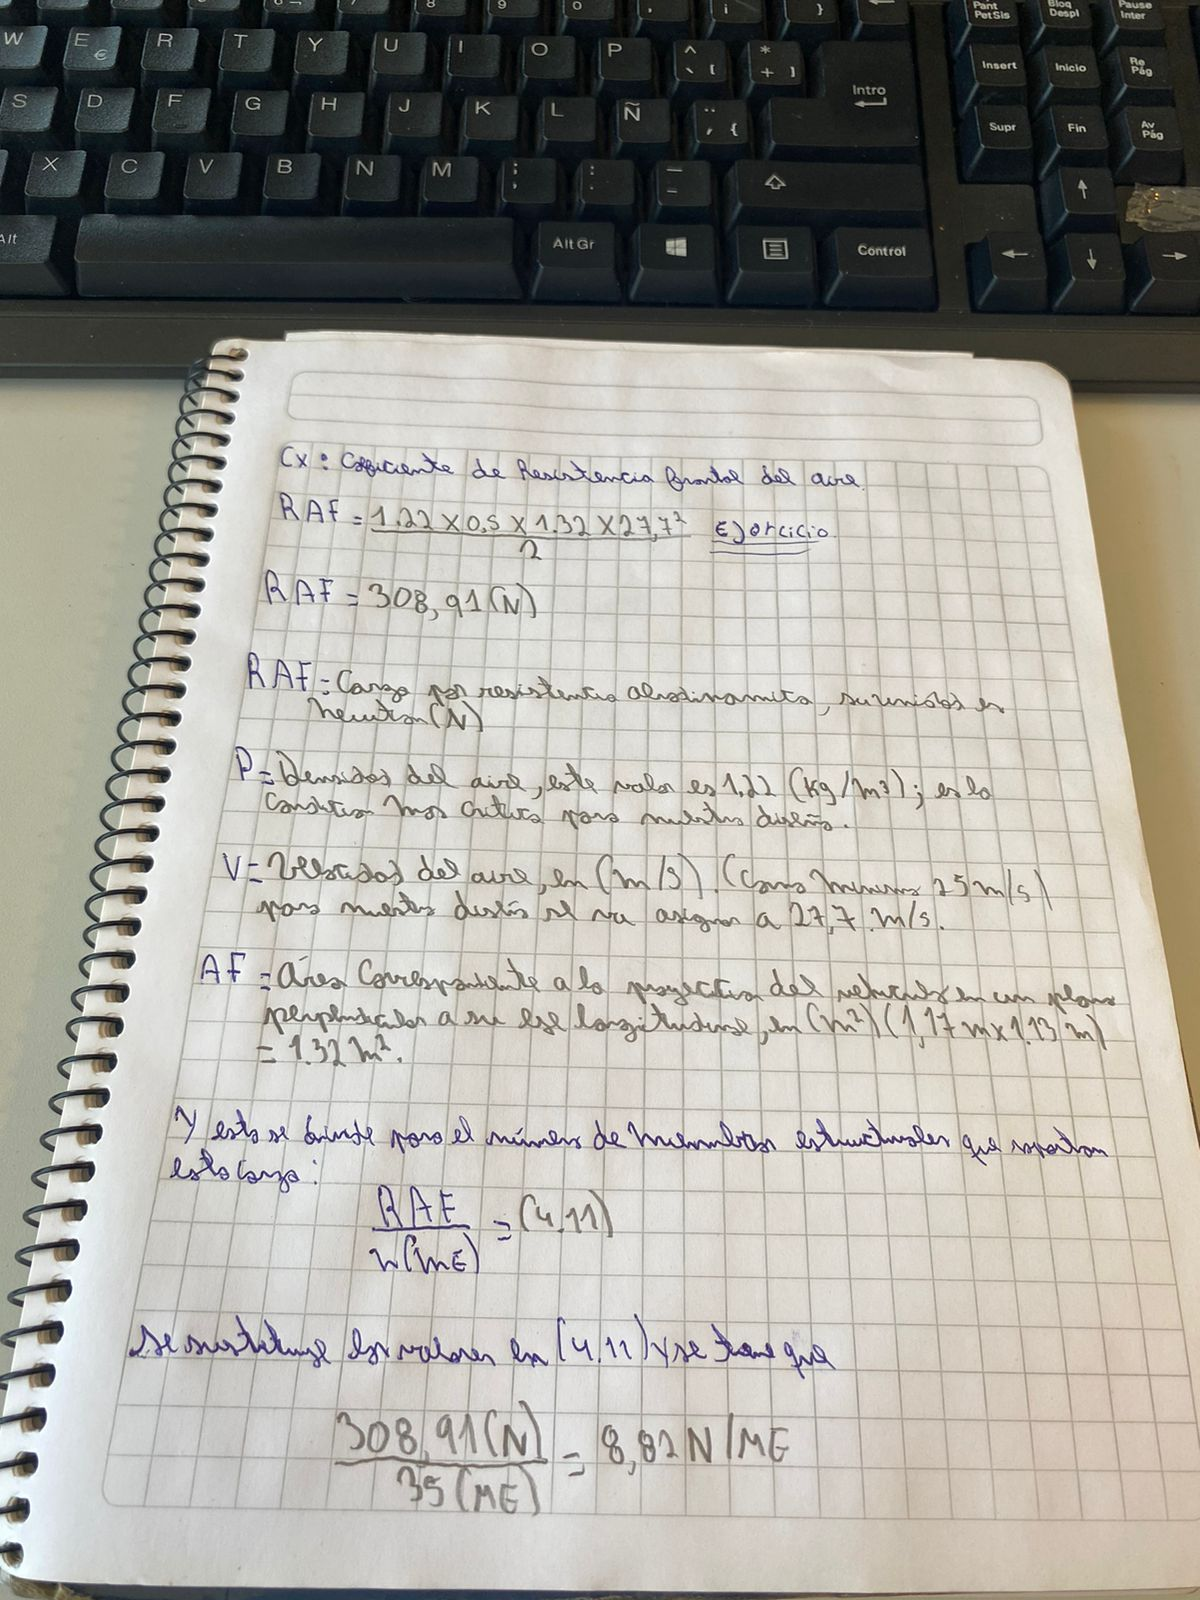 W E € R T Y U I O P ^ ` [ * + ] Intro
S D F G H J K L Ñ ¨ ´ {
X C V B N M ; , : . _ -
Alt Alt Gr Control
Pant PetSis Bloq Despl Pause Inter
Insert Inicio Re Pág
Supr Fin Av Pág
Cx: Coeficiente de Resistencia frontal del aire.
RAF = 1.22 x 0.5 x 1.32 x 27,7² / 2 Ejercicio
RAF = 308,91 (N)
RAF = Carga por resistencia aerodinamica, su unidad es
Newton (N)
P = Densidad del aire, este valor es 1,22 (kg/m3); es la
condition mas critica para nuestro diseño.
V = Velocidad del aire, en (m/s). (como minimo 25 m/s)
para nuestro diseño se va asignar a 27,7 m/s.
AF = Área Correspondiente a la proyeccion del vehiculo en un plano
perpendicular a su eje longitudinal, en (m²) (1,17 m x 1.13 m)
= 1.32 m².
Y esto se divide para el número de miembros estructurales que soportan
esta carga:
RAF / N(ME) = (4.11)
Se sustituye los valores en (4.11) y se tiene que
308,91 (N) / 35 (ME) = 8,82 N/ME